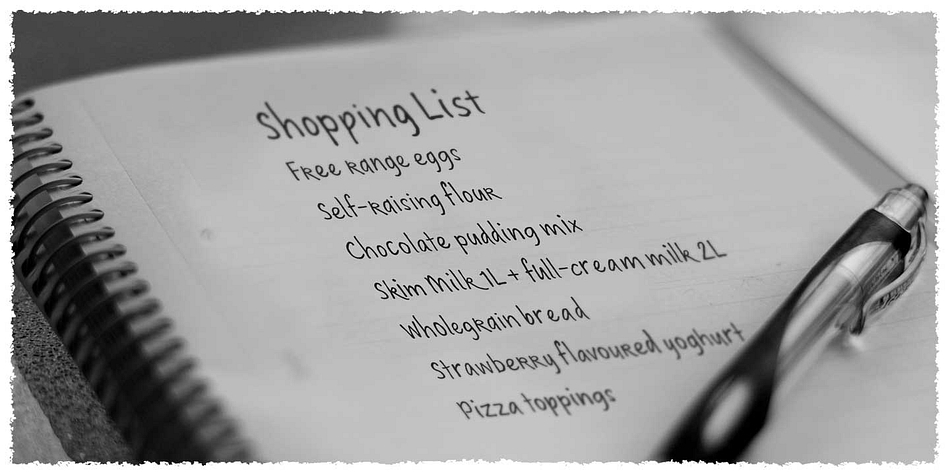 Shopping List
Free range eggs
Self-raising flour
Chocolate pudding mix
Skim Milk 1L + full-cream milk 2L
Wholegrain bread
Strawberry flavoured yoghurt
Pizza toppings